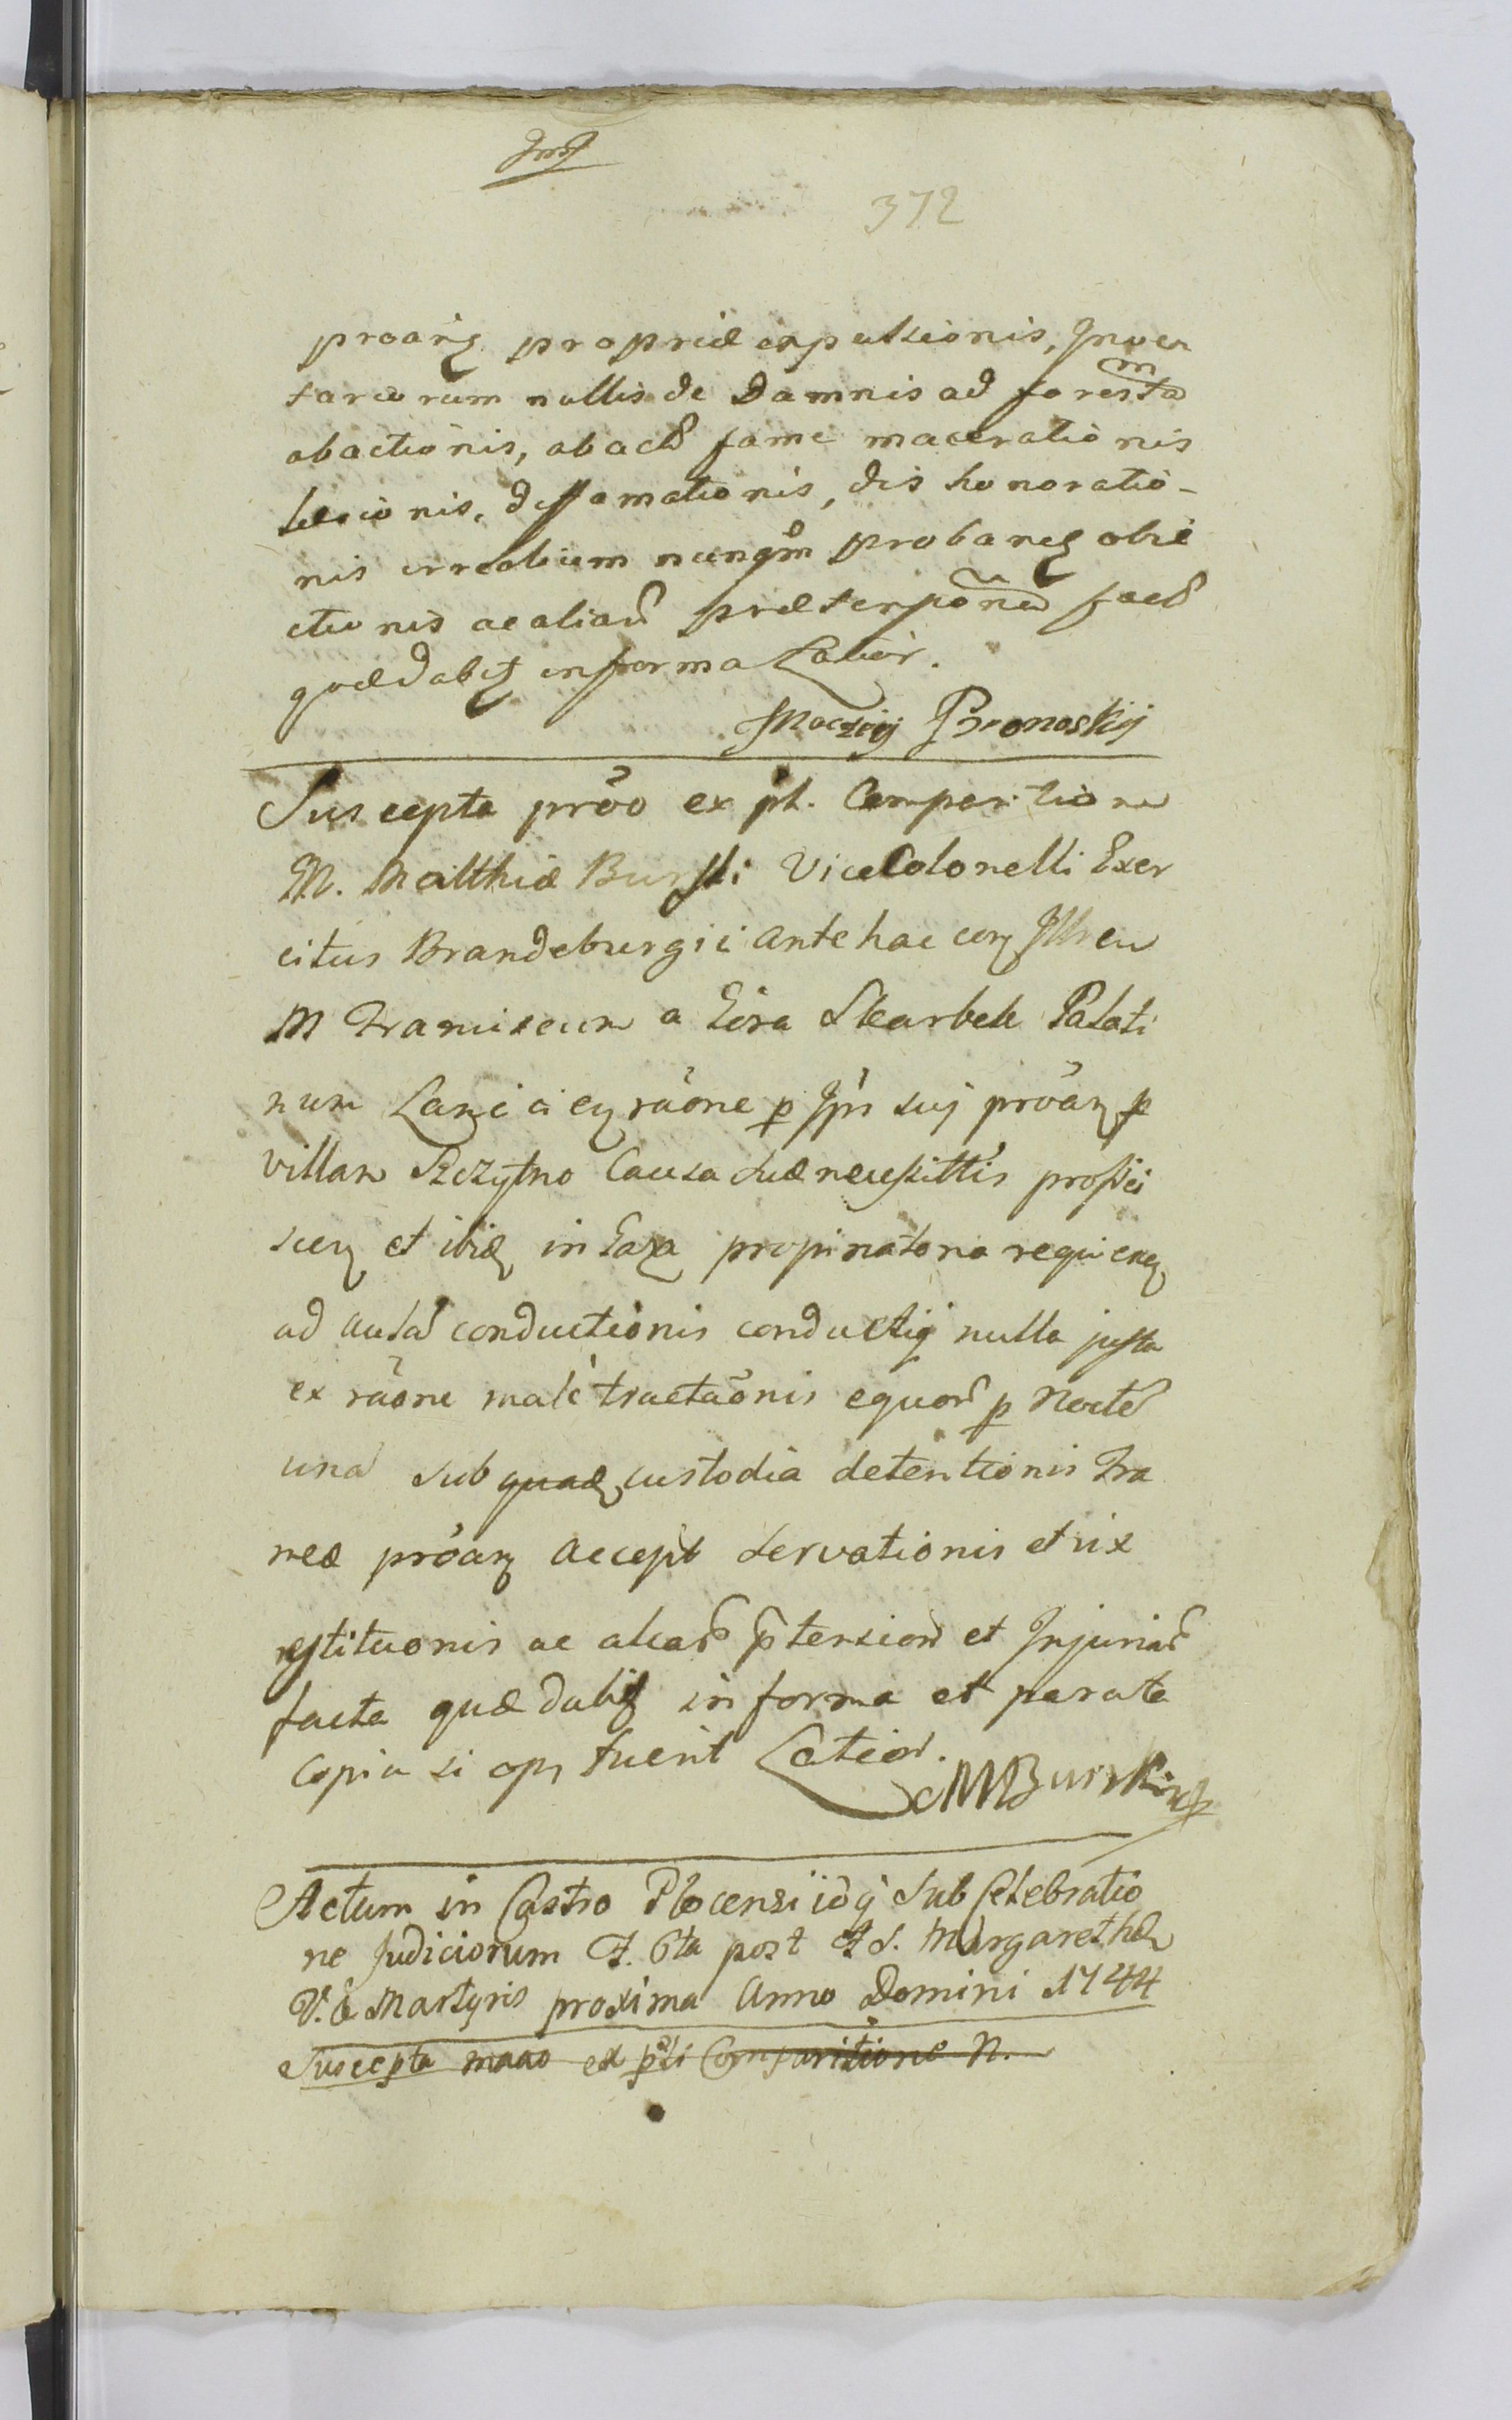 372
proãnꝫ propriæ expulsionis, Inven
tariorum nullis de Damnis ad foresta
abactionis, abact fame macerationis
læsionis, diffamationis, dis honoratio-
nis erroalium nunqm probaneꝫ obie
ctionis ac aliar præterpõne fact
quædabꝫ in forma Latior.
Maczieÿ Bronoskij
Suscepta prõo ex pt. Comparitione
M. Matthiæ Burski ViceColonelli Exer
citus Brandeburgici antehac corꝫ Illrem
M Franciscum a Góra Skarbek Palati
num Lancicieꝫ rãone p Ipsi suj prõanꝫ p
villam Szczytno Causa suæ necessittis profici
scenꝫ et ibidꝫ in Taxa propinatoria requienꝫ
ad aulã conductionis conductiqꝫ nulla justa
ex rãone malè tractaõnis equor p Noctẽ
unã sub custodia detentionis Fra
meæ prõanꝫ accept servationis et vix
restituonis ac aliar p̃tension et Injuriar
facta quædabꝫ in forma et parata
Copia si opꝫ fuerit Lation.
MBurski mp
Actum in Castro Plocensi idqꝫ sub Celebratio
ne Judiciorum F. 6ta post F S. Margarethæ
V. & Martyris proxima Anno Domini 1744
Suscepta mãao ex pti Comparitione N.